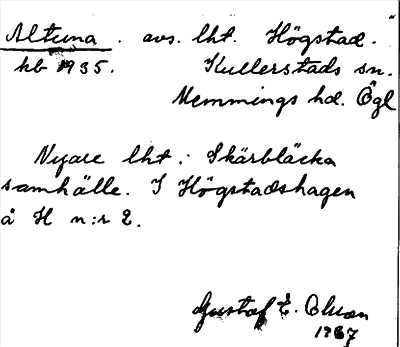 Altuna. avs. lht. Högstad.
kb 1935. Kullerstads sn.
Memmings hd. Ögl
Nyare lht. Skärbläcka
samhälle. I Högstadshagen
å H n:r 2.
Gustaf E. Olson
1937